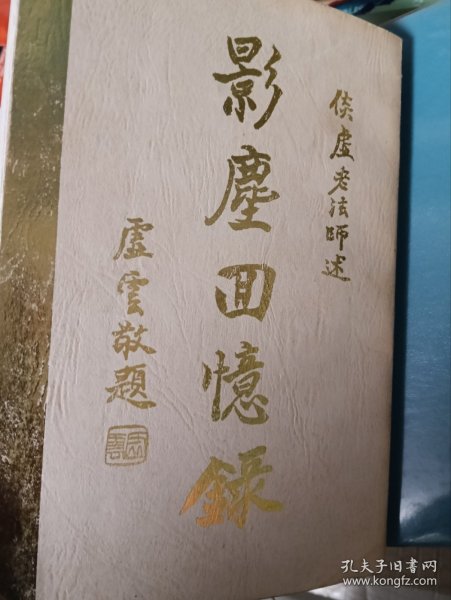 倓虛老法師述
影塵回憶錄
虛雲敬題
孔夫子旧书网
www.kongfz.com